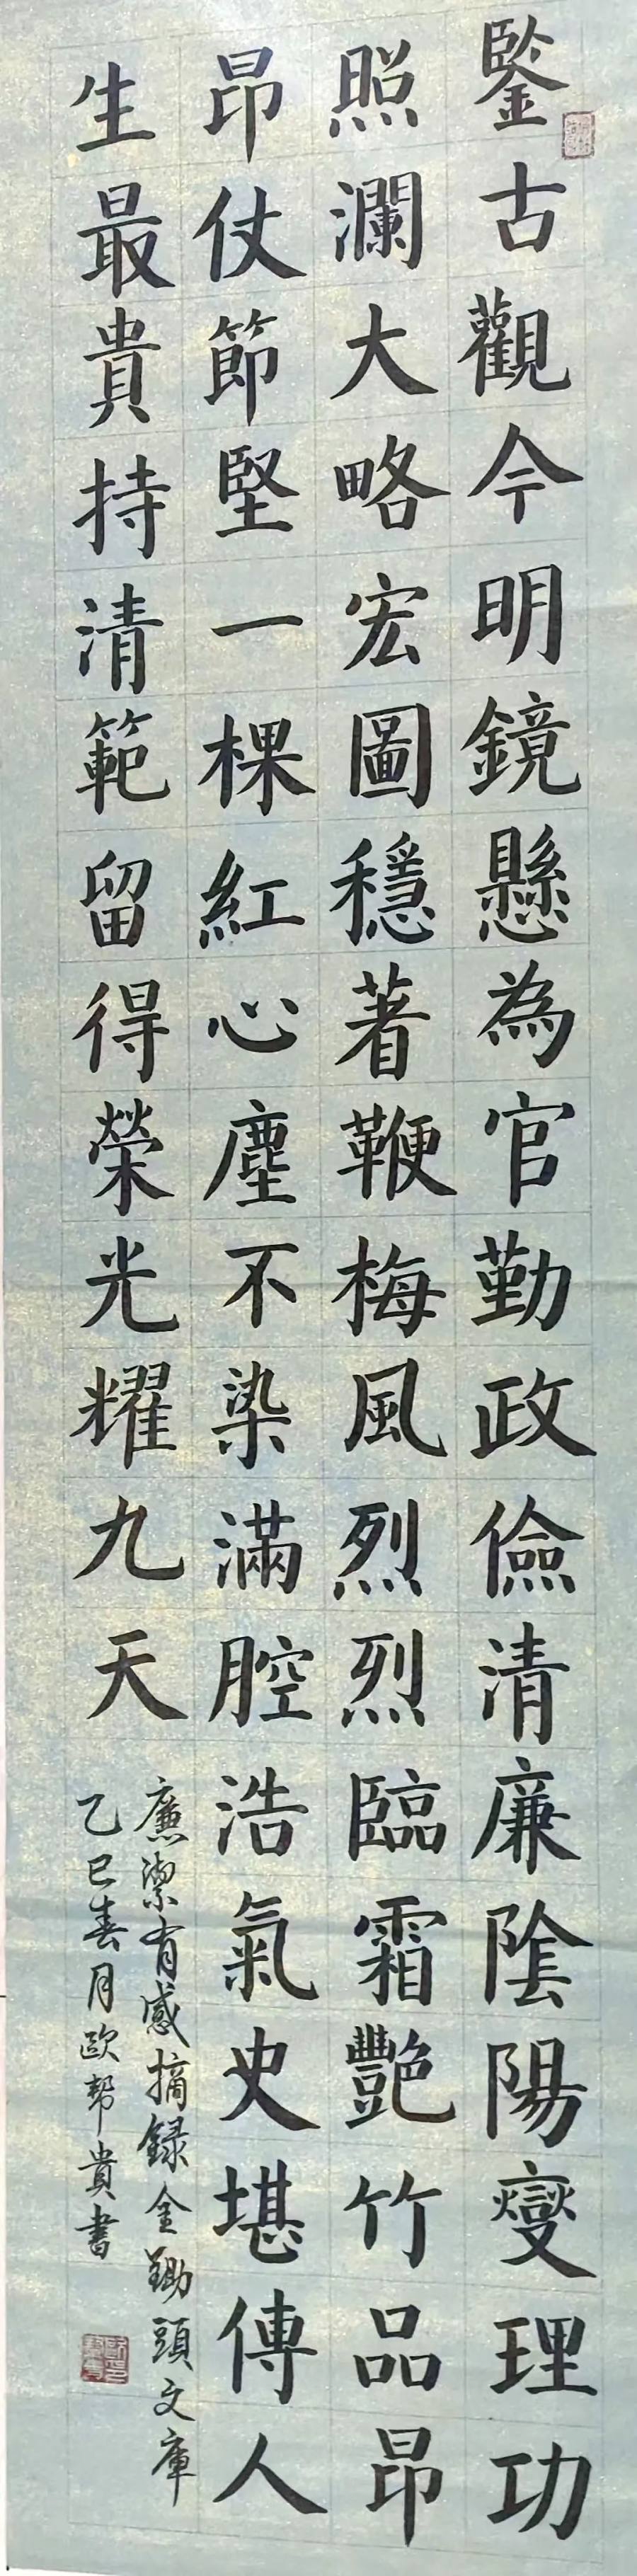 鍳古觀今明鏡懸為官勤政儉清廉陰陽燮理功
照瀾大略宏圖穩著鞭梅風烈烈臨霜艷竹品昂
昂仗節堅一棵紅心塵不染滿腔浩氣史堪傳人
生最貴持清範留得榮光耀九天
廉潔有感摘録金鋤頭文庫
乙巳春月歐幇貴書